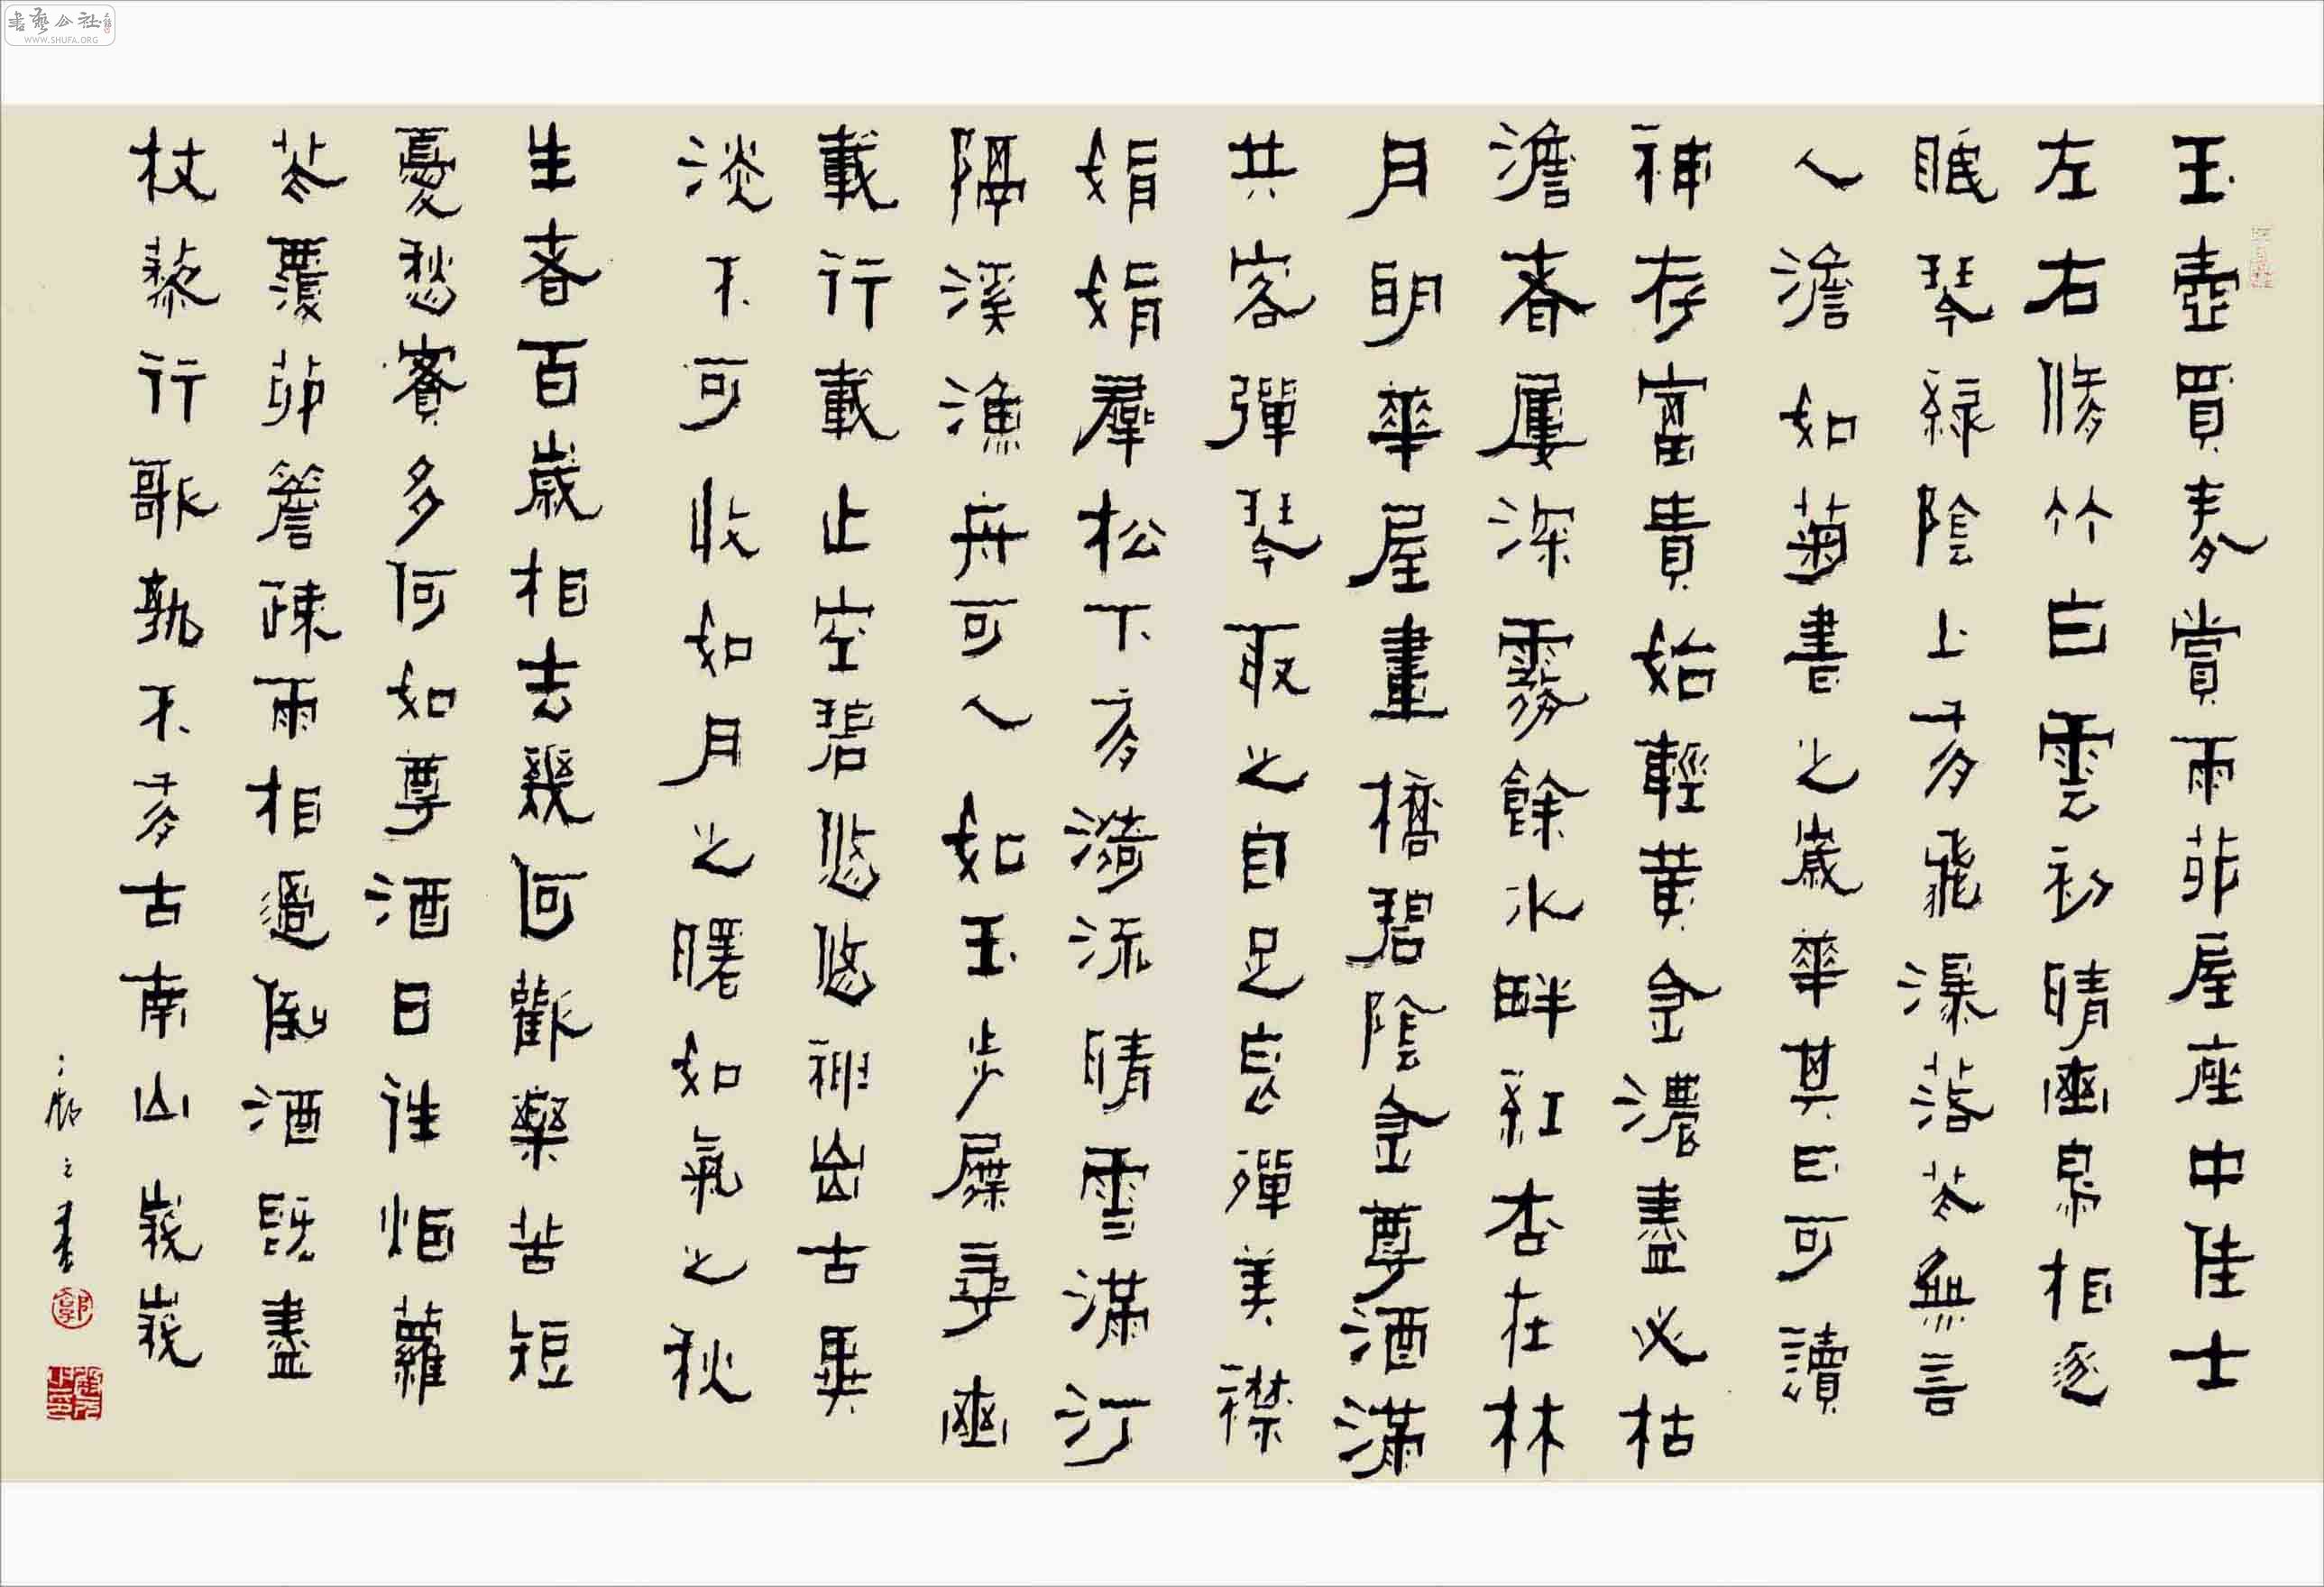 玉壺買春賞雨茆屋座中佳士
左右脩竹白雲初晴幽鳥相逐
眠琴緑陰上有飛瀑落花無言
人澹如菊書之歲華其曰可讀
神存富貴始輕黃金濃盡必枯
澹春屢深霧餘水畔紅杏在林
月明華屋畫橋碧陰金尊酒滿
共客彈琴取之自足良殫美襟
娟娟羣松下有漪流晴雪滿汀
隔溪漁舟可人如玉步屧尋幽
載行載止空碧悠悠神出古異
淡不可收如月之曙如氣之秋
生者百歲相去幾何歡樂苦短
憂愁實多何如尊酒日往烟蘿
花覆茆簷疎雨相過倒酒既盡
杖藜行歌孰不有古南山峩峩
之書
書藝公社
WWW.SHUFA.ORG